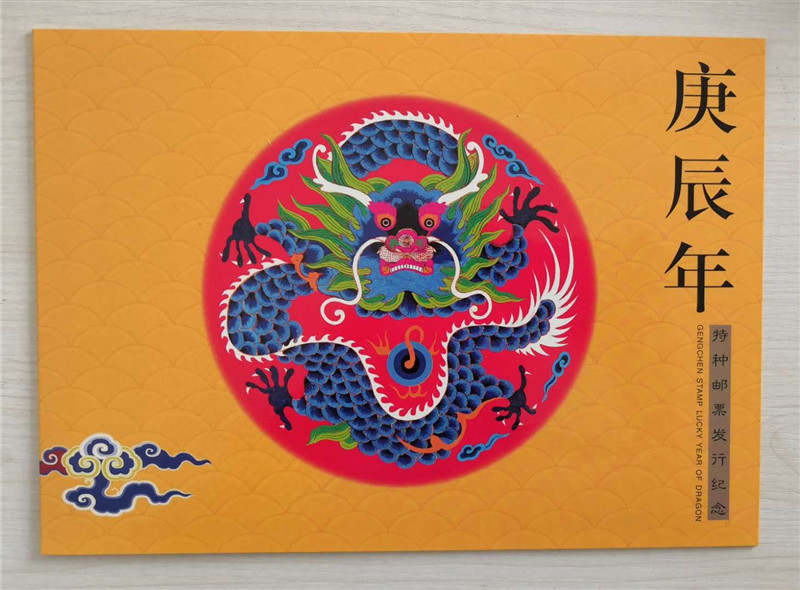 庚辰年
特种邮票发行纪念
GENGCHEN STAMP LUCKY YEAR OF DRAGON